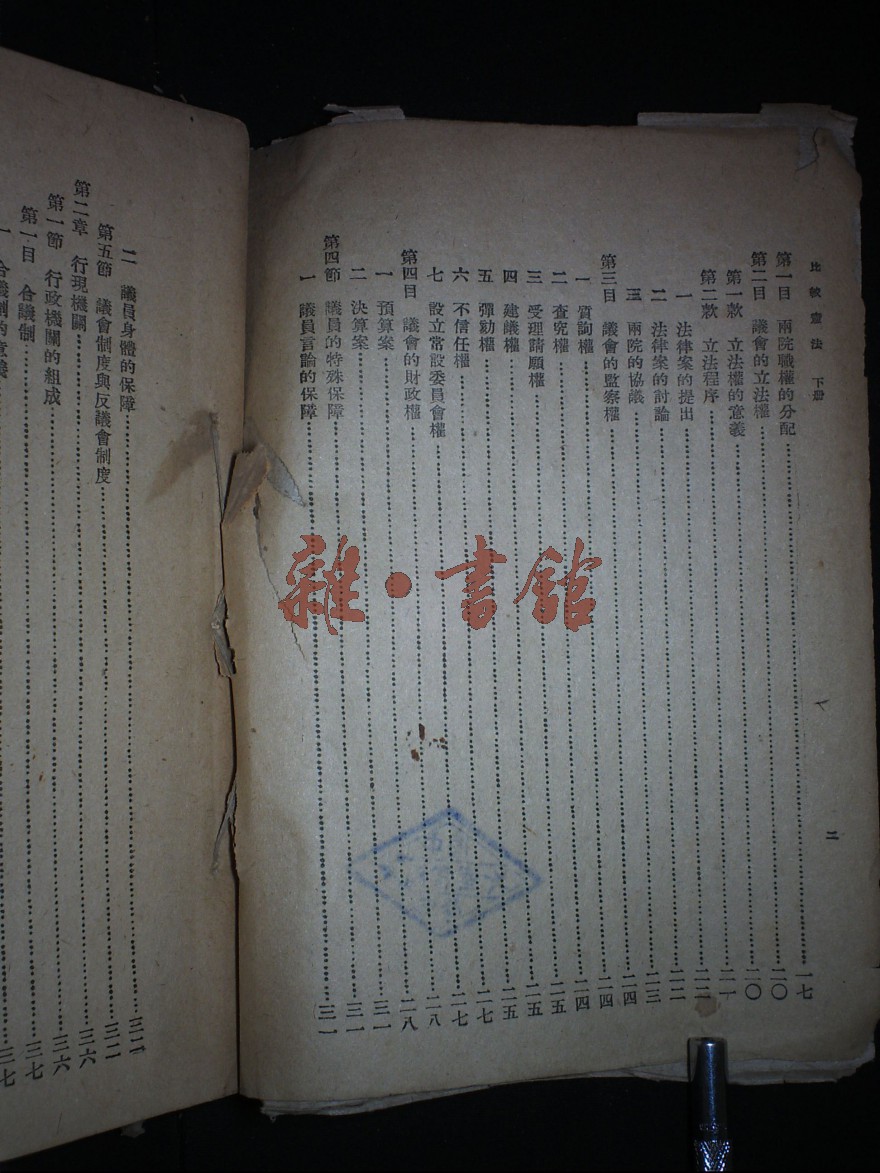 比較憲法 下册 二
第一目 兩院職權的分配 一七
第二目 議會的立法權 二〇
第一款 立法權的意義 二〇
第二款 立法程序 二一
一 法律案的提出 二二
二 法律案的討論 二二
三 兩院的協議 二三
第三目 議會的監察權 二四
一 質詢權 二四
二 查究權 二四
三 受理請願權 二五
四 建議權 二五
五 彈劾權 二五
六 不信任權 二七
七 設立常設委員會權 二七
第四目 議會的財政權 二八
一 預算案 二八
二 決算案 三一
第四節 議員的特殊保障 三一
一 議員言論的保障 三一
二 議員身體的保障 三二
第五節 議會制度與反議會制度 三二
第二章 行現機關 三六
第一節 行政機關的組成 三六
第一目 合議制 三七
一 合議制的意義 三七
雜·書館